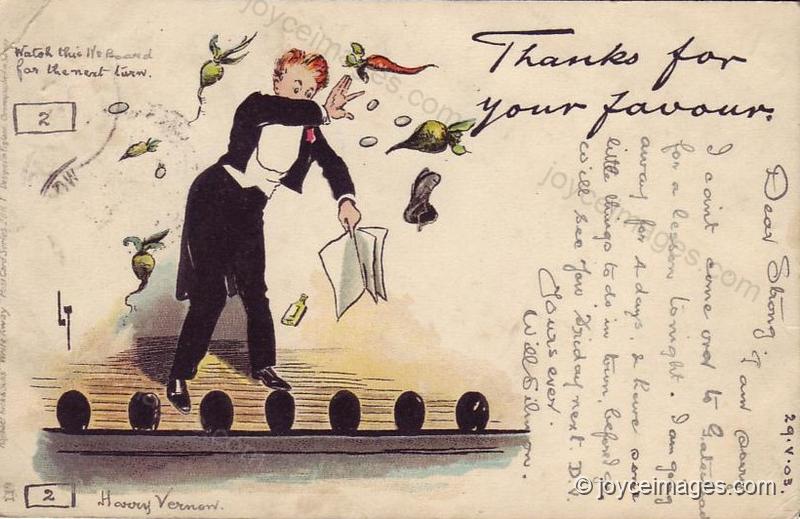 Watch this No Board
for the next turn.
2
Thanks for
your favour.
29.V.03.
Dear Strong, I am sorry
I can't come over to
for a lesson tonight. I am going
away for 4 days, & have some
little things to do in town, before
will see you Friday next. D.V.
Yours ever.
Will
2
Harry Vernon.
119
© joyceimages.com
joyceimages.com
joyceimages.com
joyceimages.com
joyceimages.com